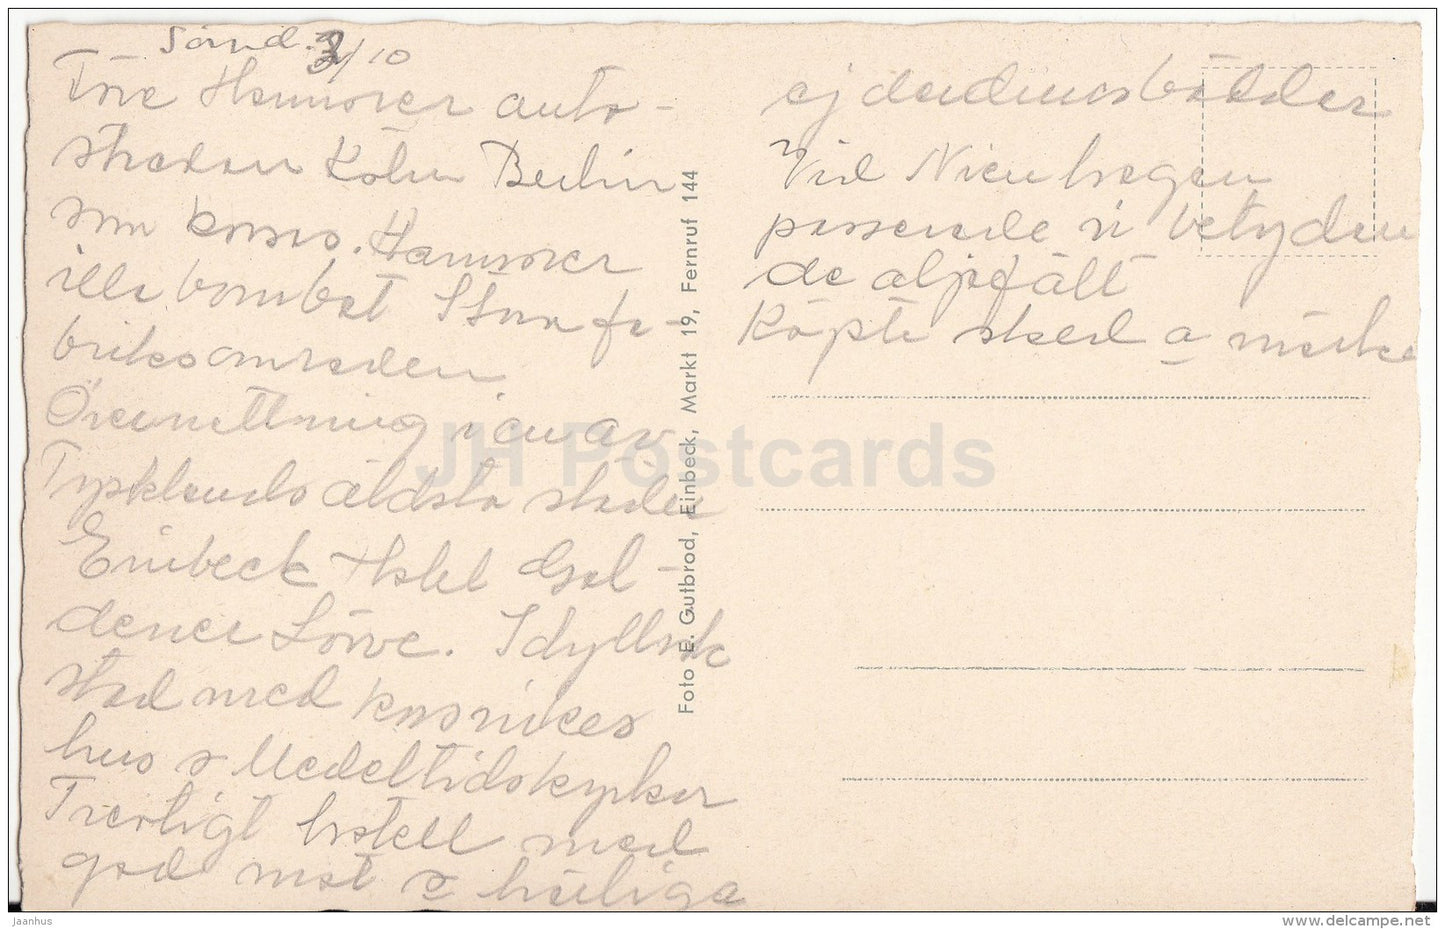 Sönd. 3/10
Före Hannover auto-
stradan Köln Berlin
som korsas. Hannover
illa bombat Stora fa-
briksområden
Övernattning i en av
Tysklands äldsta städer
Einbeck Hotel Gol-
dener Löwe. Idyllisk
stad med korsvirkes
hus & Medeltidskyrkor
Trevligt hotell med
god mat & härliga
ejderdunsbäddar
Vid Nienhagen
passerade vi betydan
de oljefält
Köpte sked a märke
Foto E. Gutbrod, Einbeck, Markt 19, Fernruf 144
JH Postcards
jaanhus
www.delcampe.net